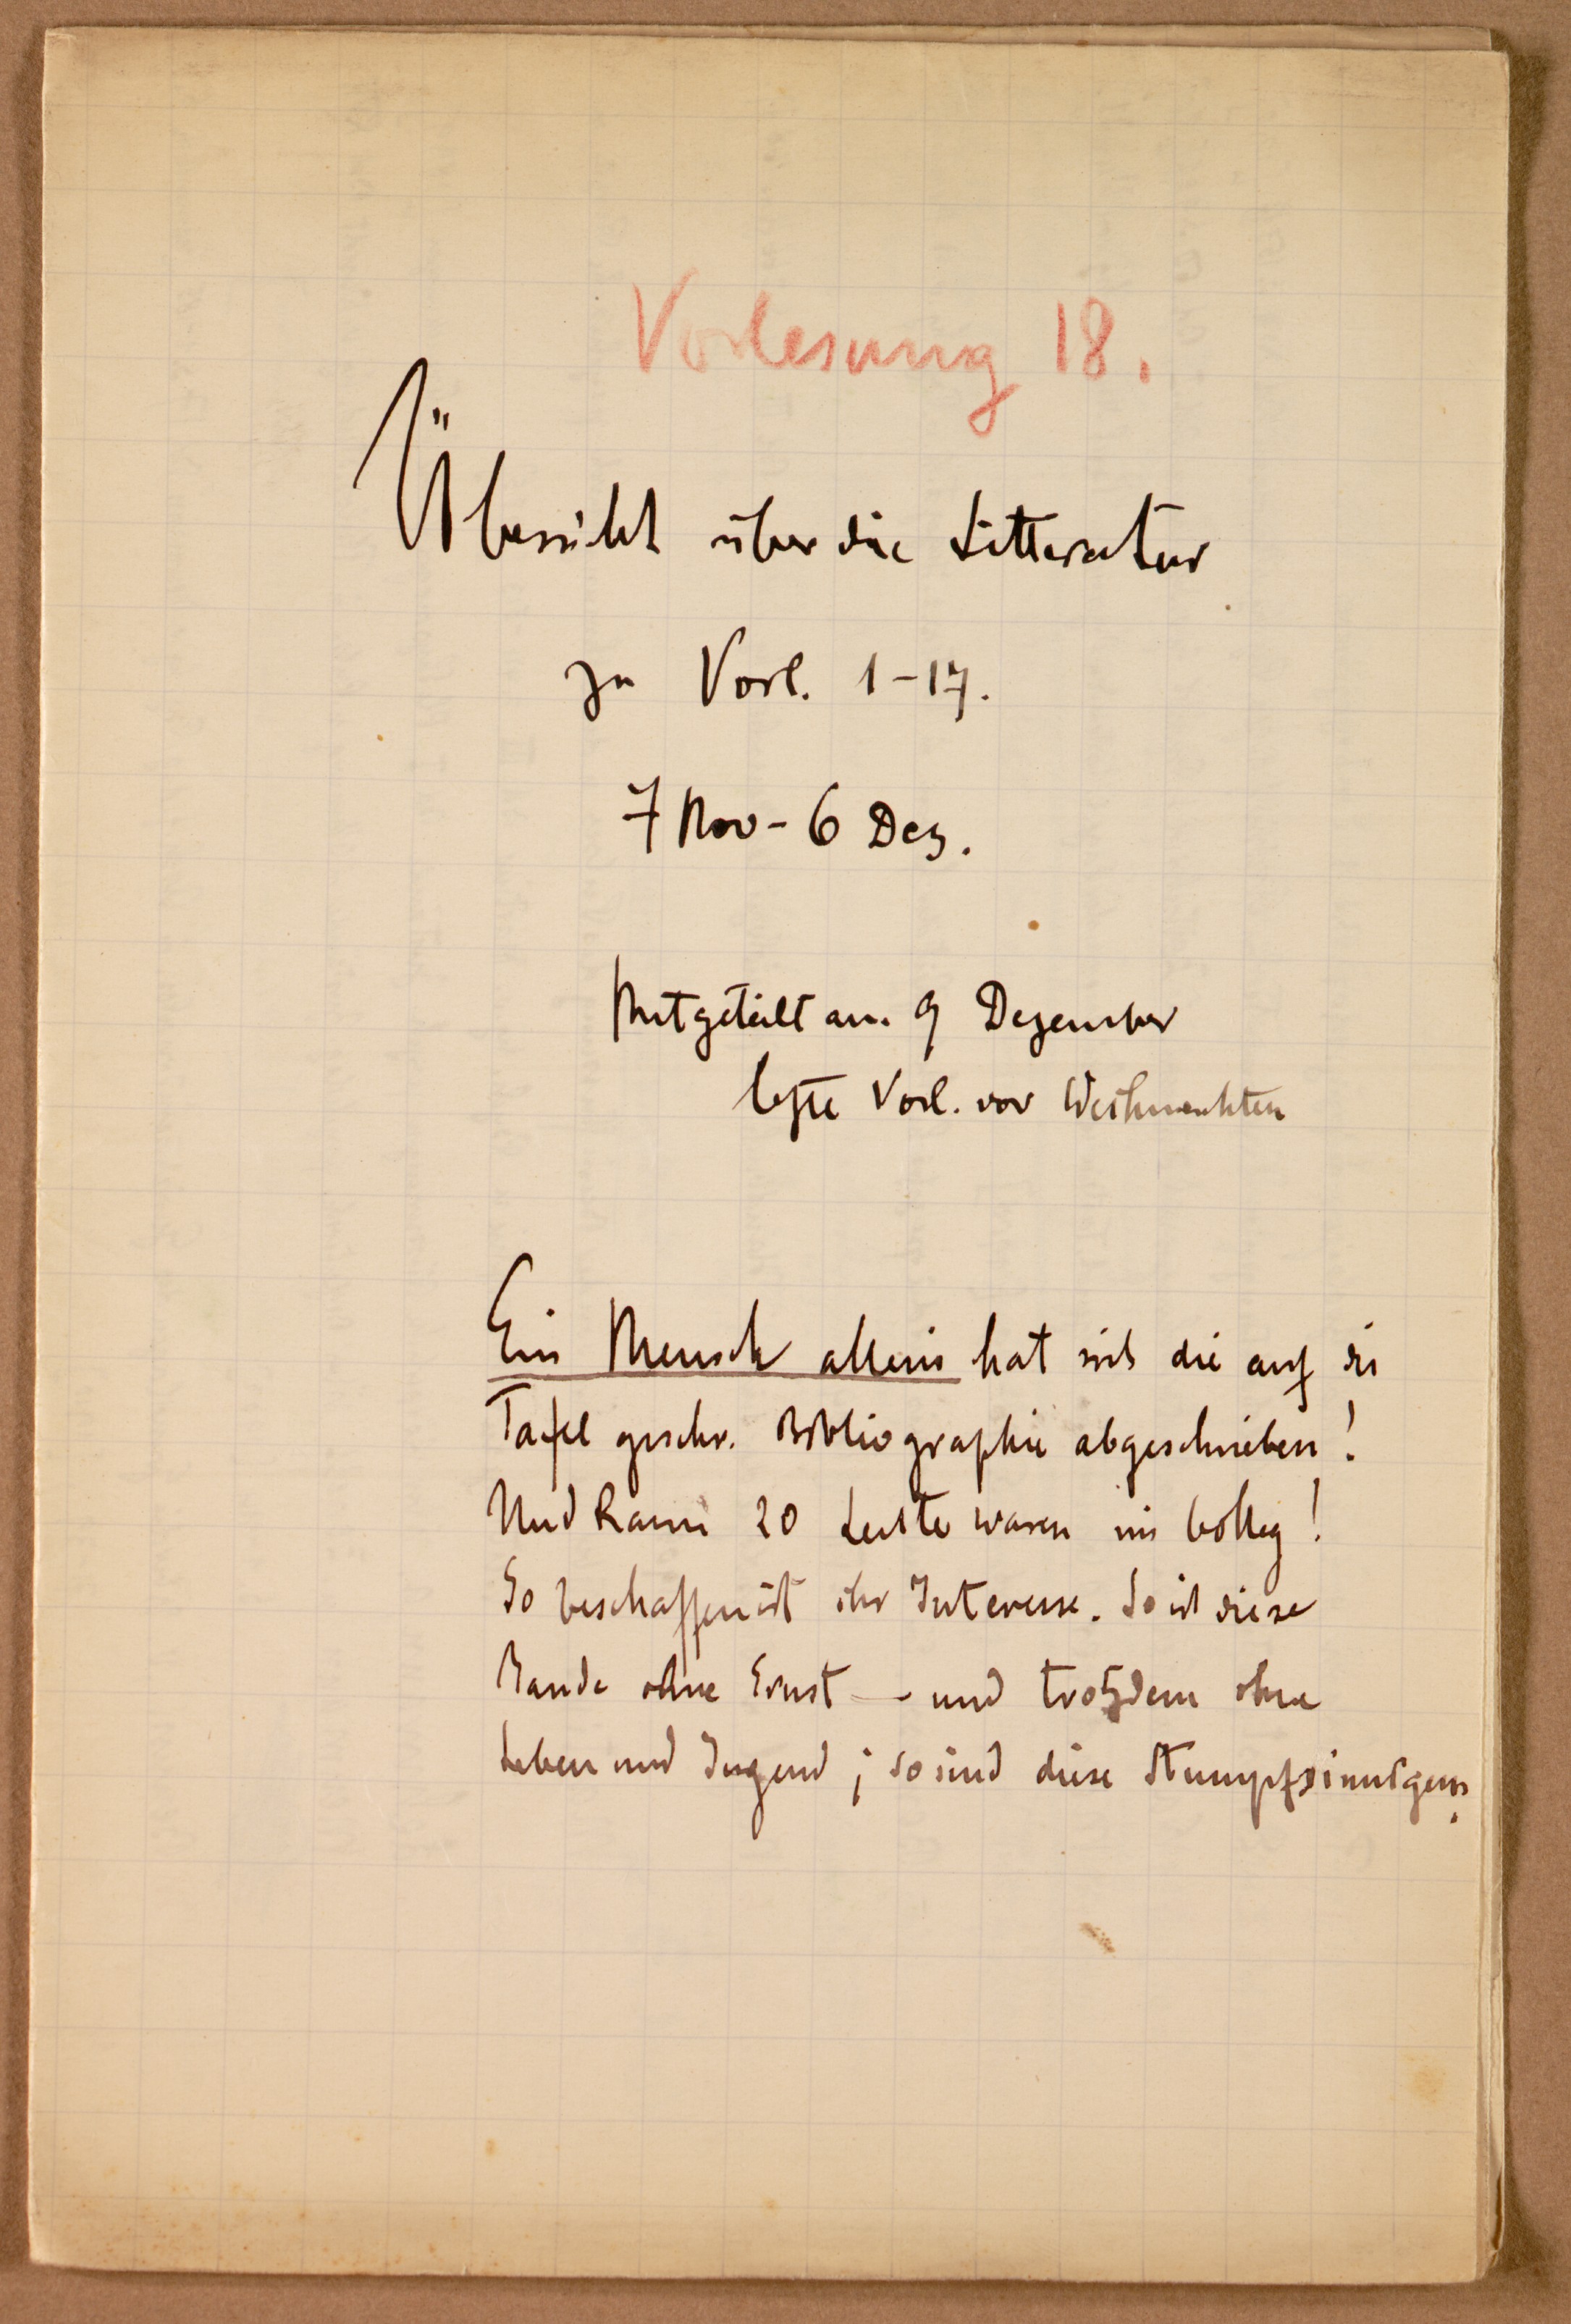 Vorlesung 18.
Übersicht über die Litteratur
zu Vorl. 1-17.
7 Nov - 6 Dez.
Mitgeteilt am 9 Dezember
letzte Vorl. vor Weihnachten
Ein Mensch allein hat sich die auf die
Tafel geschr. Bibliographie abgeschrieben!
Und kaum 20 Leute waren im Colleg!
So beschaffen ist ihr Interesse. So ist diese
Bande ohne Ernst — und trotzdem ohne
Leben und Jugend; so sind diese Stumpfsinnigen.